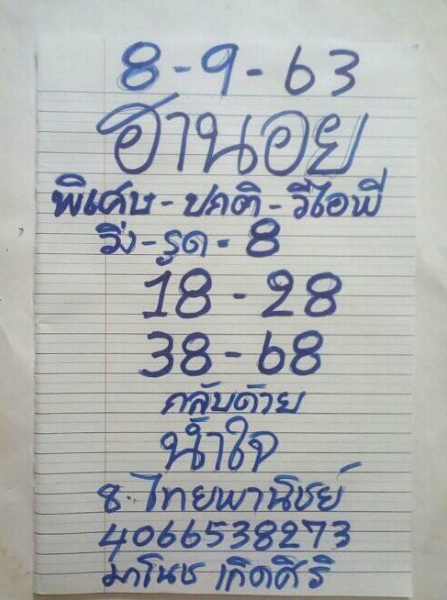 8-9-63
ฮานอย
พิเศษ-ปกติ-วีไอพี
วิ่ง-รูด-8
18-28
38-68
กลับด้วย
น้ำใจ
ธ.ไทยพานิชย์
4066538273
มาโนช เกิดศิริ